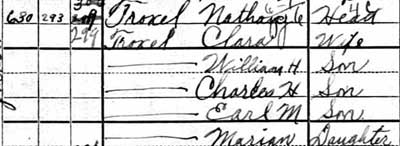 630 293 Troxel Nathaniel Head
299 Troxel Clara Wife
William H Son
Charles H Son
Earl M Son
Marian Daughter